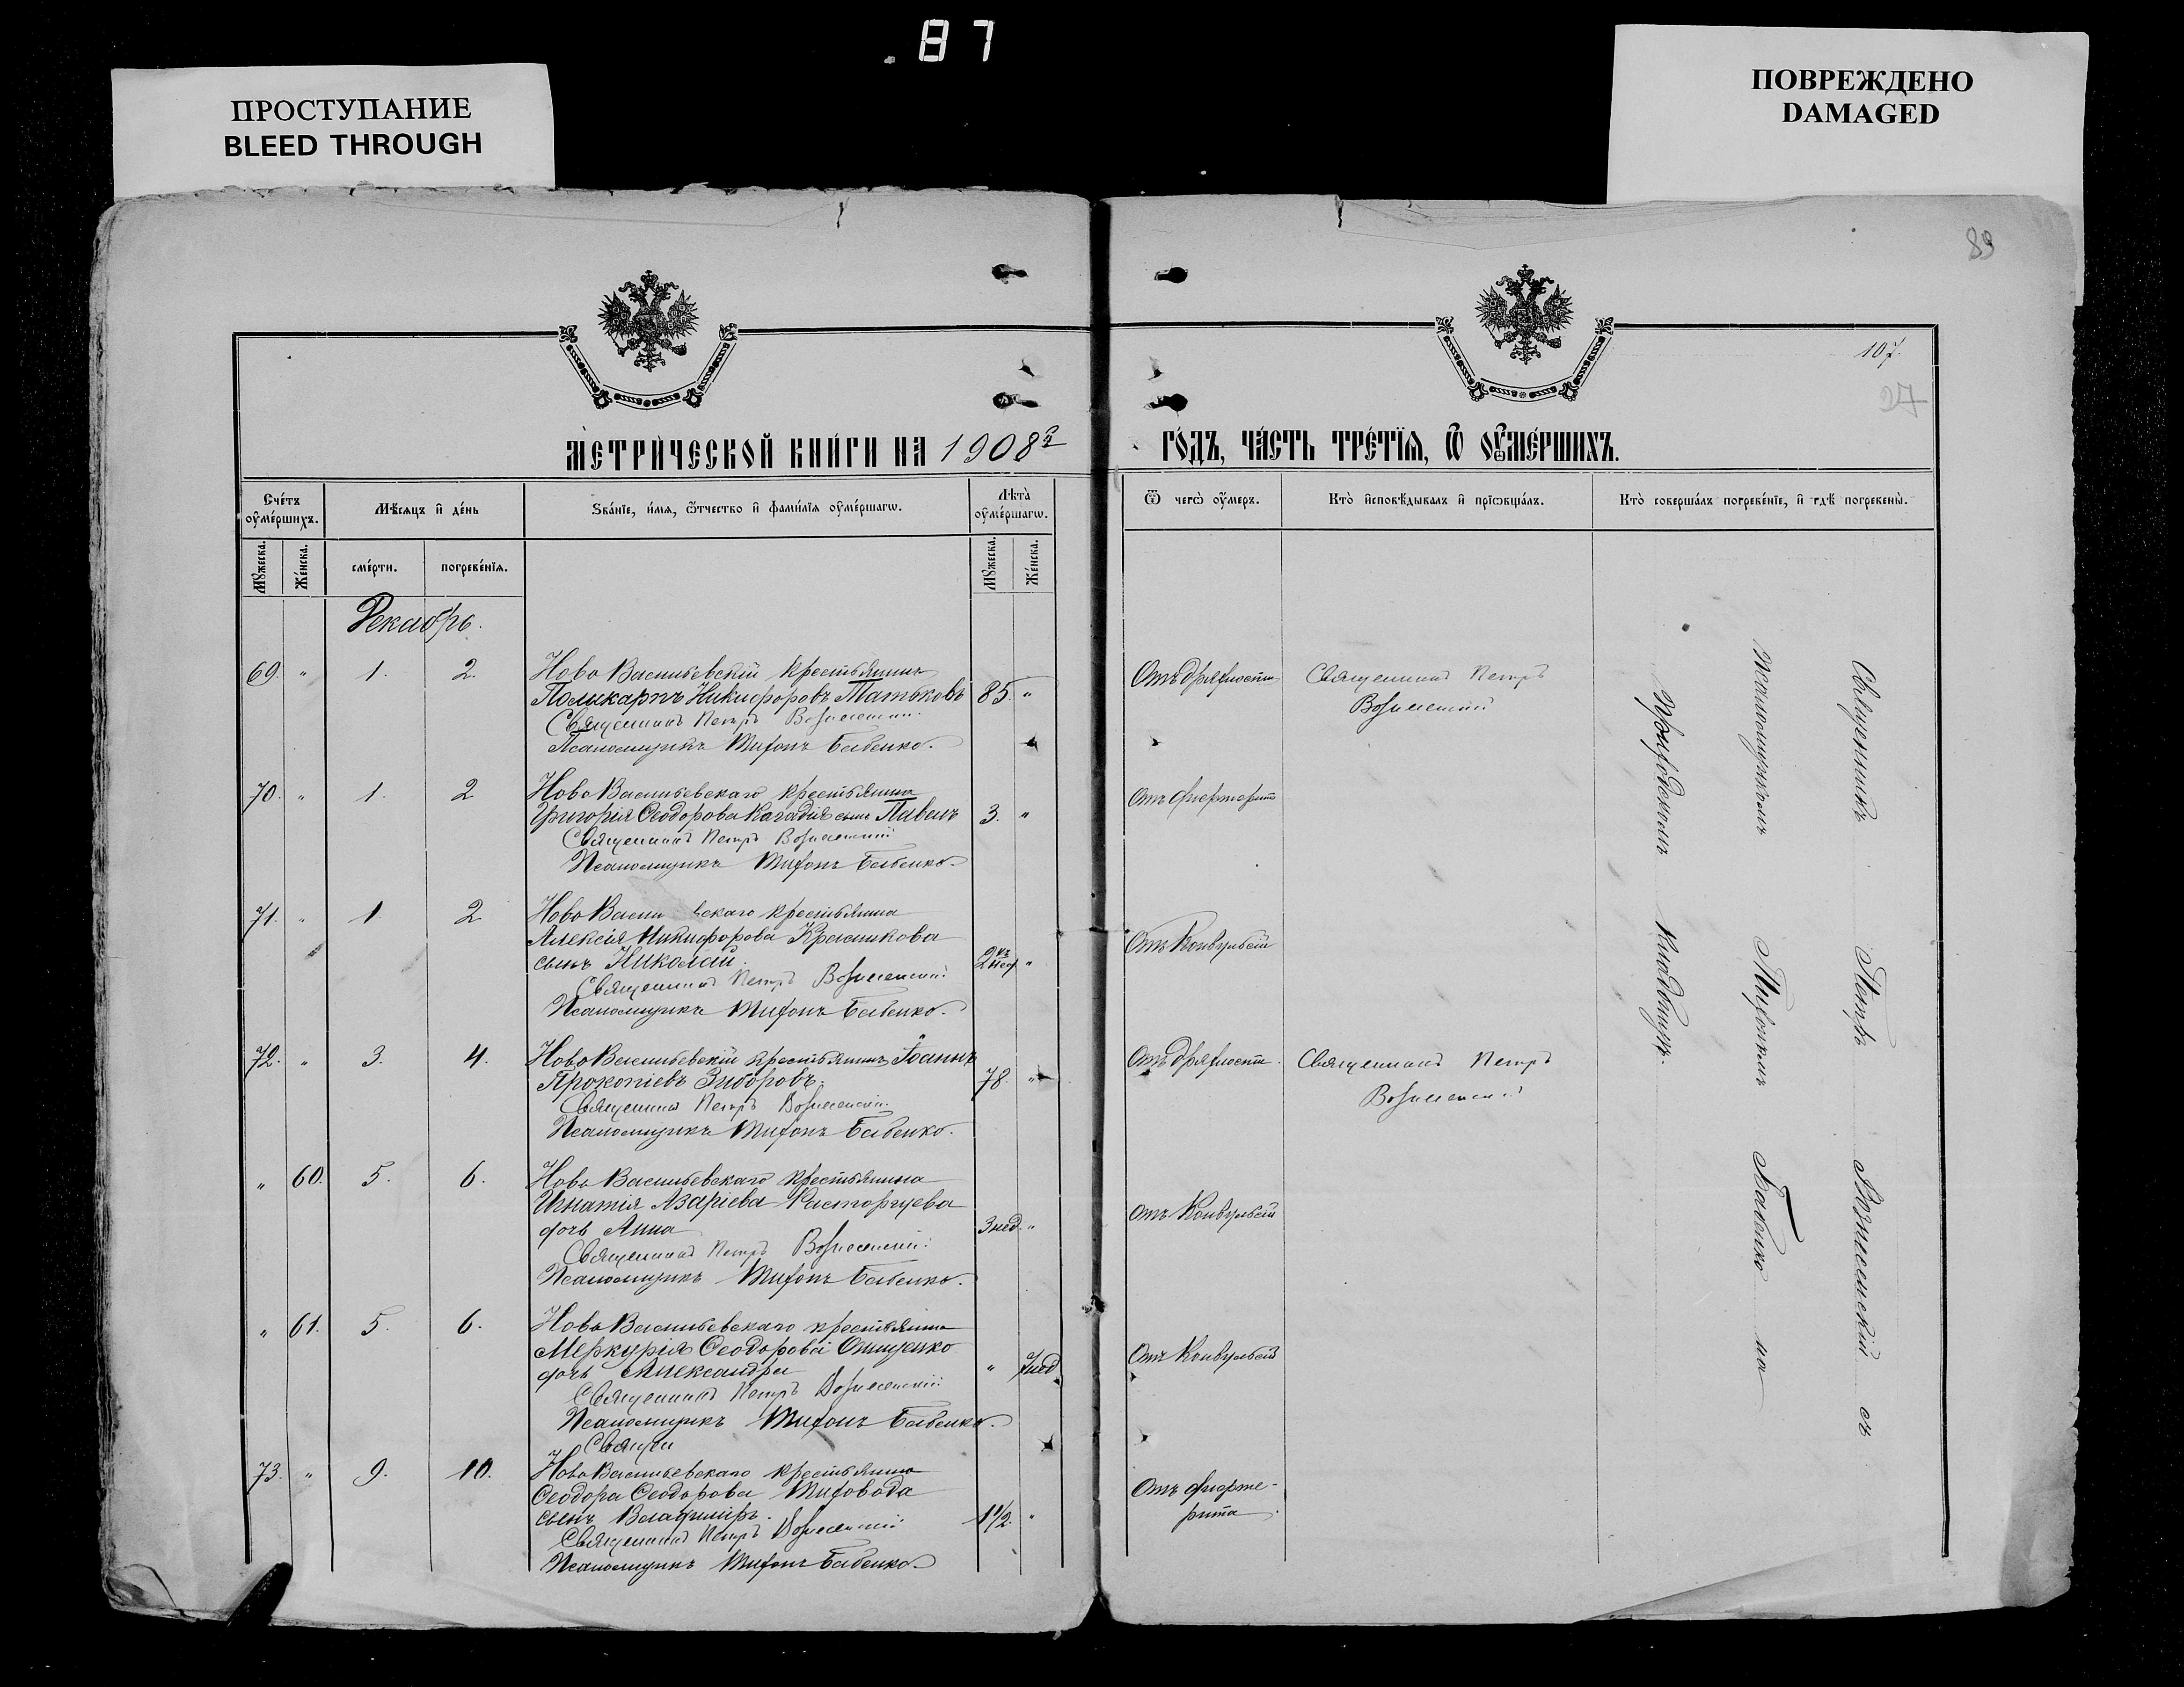 87
ПРОСТУПАНИЕ
BLEED THROUGH
ПОВРЕЖДЕНО
DAMAGED
89
107.
27
МЕТРИЧЕСКОЙ КНИГИ НА 1908 й
ГОДЪ, ЧАСТЬ ТРЕТІЯ, Ѿ ОУМЕРШИХЪ.
Счетъ оумершихъ.
Мѣсяцъ и день
Званіе, имя, отчество и фамилія оумершагѡ.
Лѣта оумершагѡ.
Ѿ чегѡ оумеръ.
Кто исповѣдывалъ и пріѡбщалъ.
Кто совершалъ погребеніе, и гдѣ погребены.
Мужеска.
Женска.
смерти.
погребенія.
Мужеска.
Женска.
Декабрь.
69. " 1. 2. Ново Васильевскій крестьянинъ
Поликарпъ Никифоровъ Матьковъ 85. " Отъ дряхлости Священникъ Петръ
Вознесенскій
Священникъ Петръ Вознесенскій
Псаломщикъ Тифонъ Бабенко.
70. " 1. 2 Ново Васильевскаго крестьянина
Григорія Ѳеодорова сынъ Павелъ 3. " Отъ дифтерита
Священникъ Петръ Вознесенскій
Псаломщикъ Тифонъ Бабенко.
71. " 1. 2 Ново Васи вскаго крестьянина
Алексія Никифорова Красникова
сынъ Николай. 2 нед "
Отъ Конвульсій
Священникъ Петръ Вознесенскій
Псаломщикъ Тифонъ Бабенко.
72. " 3. 4. Ново Васильевскій крестьянинъ Іоаннъ
Прокопіевъ Зиборовъ. 78. " Отъ дряхлости. Священникъ Петръ
Вознесенскій
Священникъ Петръ Вознесенскій
Псаломщикъ Тифонъ Бабенко.
" 60. 5. 6. Ново Васильевскаго крестьянина
Игнатія Азаріева Расторгуева
дочь Анна 3 нед. "
Отъ Конвульсій
Священникъ Петръ Вознесенскій
Псаломщикъ Тифонъ Бабенко.
" 61. 5. 6. Ново Васильевскаго крестьянина
Меркурія Ѳеодорова Онищенко
дочь Александра " нед
Отъ Конвульсій
Священникъ Петръ Вознесенскій
Псаломщикъ Тифонъ Бабенко.
Священ
73. " 9. 10. Ново Васильевскаго крестьянина
Ѳеодора Ѳеодорова
сынъ Владиміръ. 1 1/2. "
Отъ дифте-
рита.
Священникъ Петръ Вознесенскій
Псаломщикъ Тифонъ Бабенко.
Священникъ Петръ Вознесенскій съ
Псаломщикомъ Тифономъ Бабенко на
приходскомъ кладбищѣ.